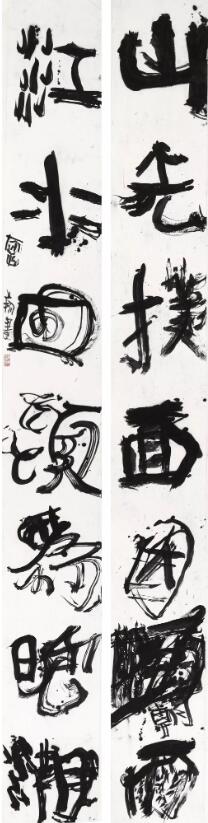 山光撲面因朝雨
江水回頭爲晚潮